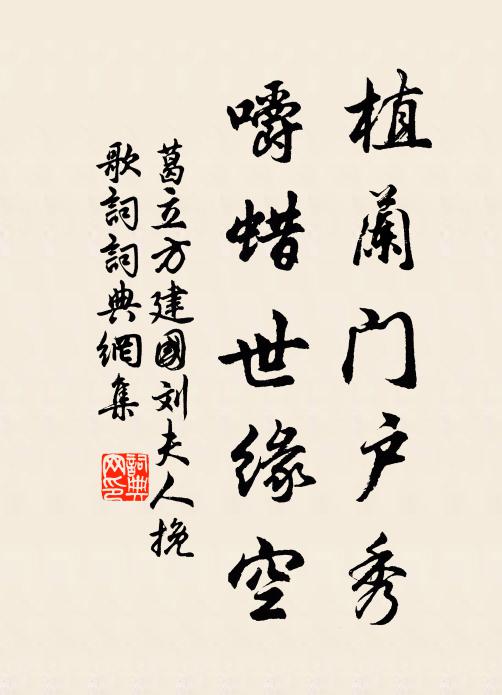 植蘭门户秀
嚼蜡世缘空
葛立方建國刘夫人挽
歌詞詞典網集
詞典
网印